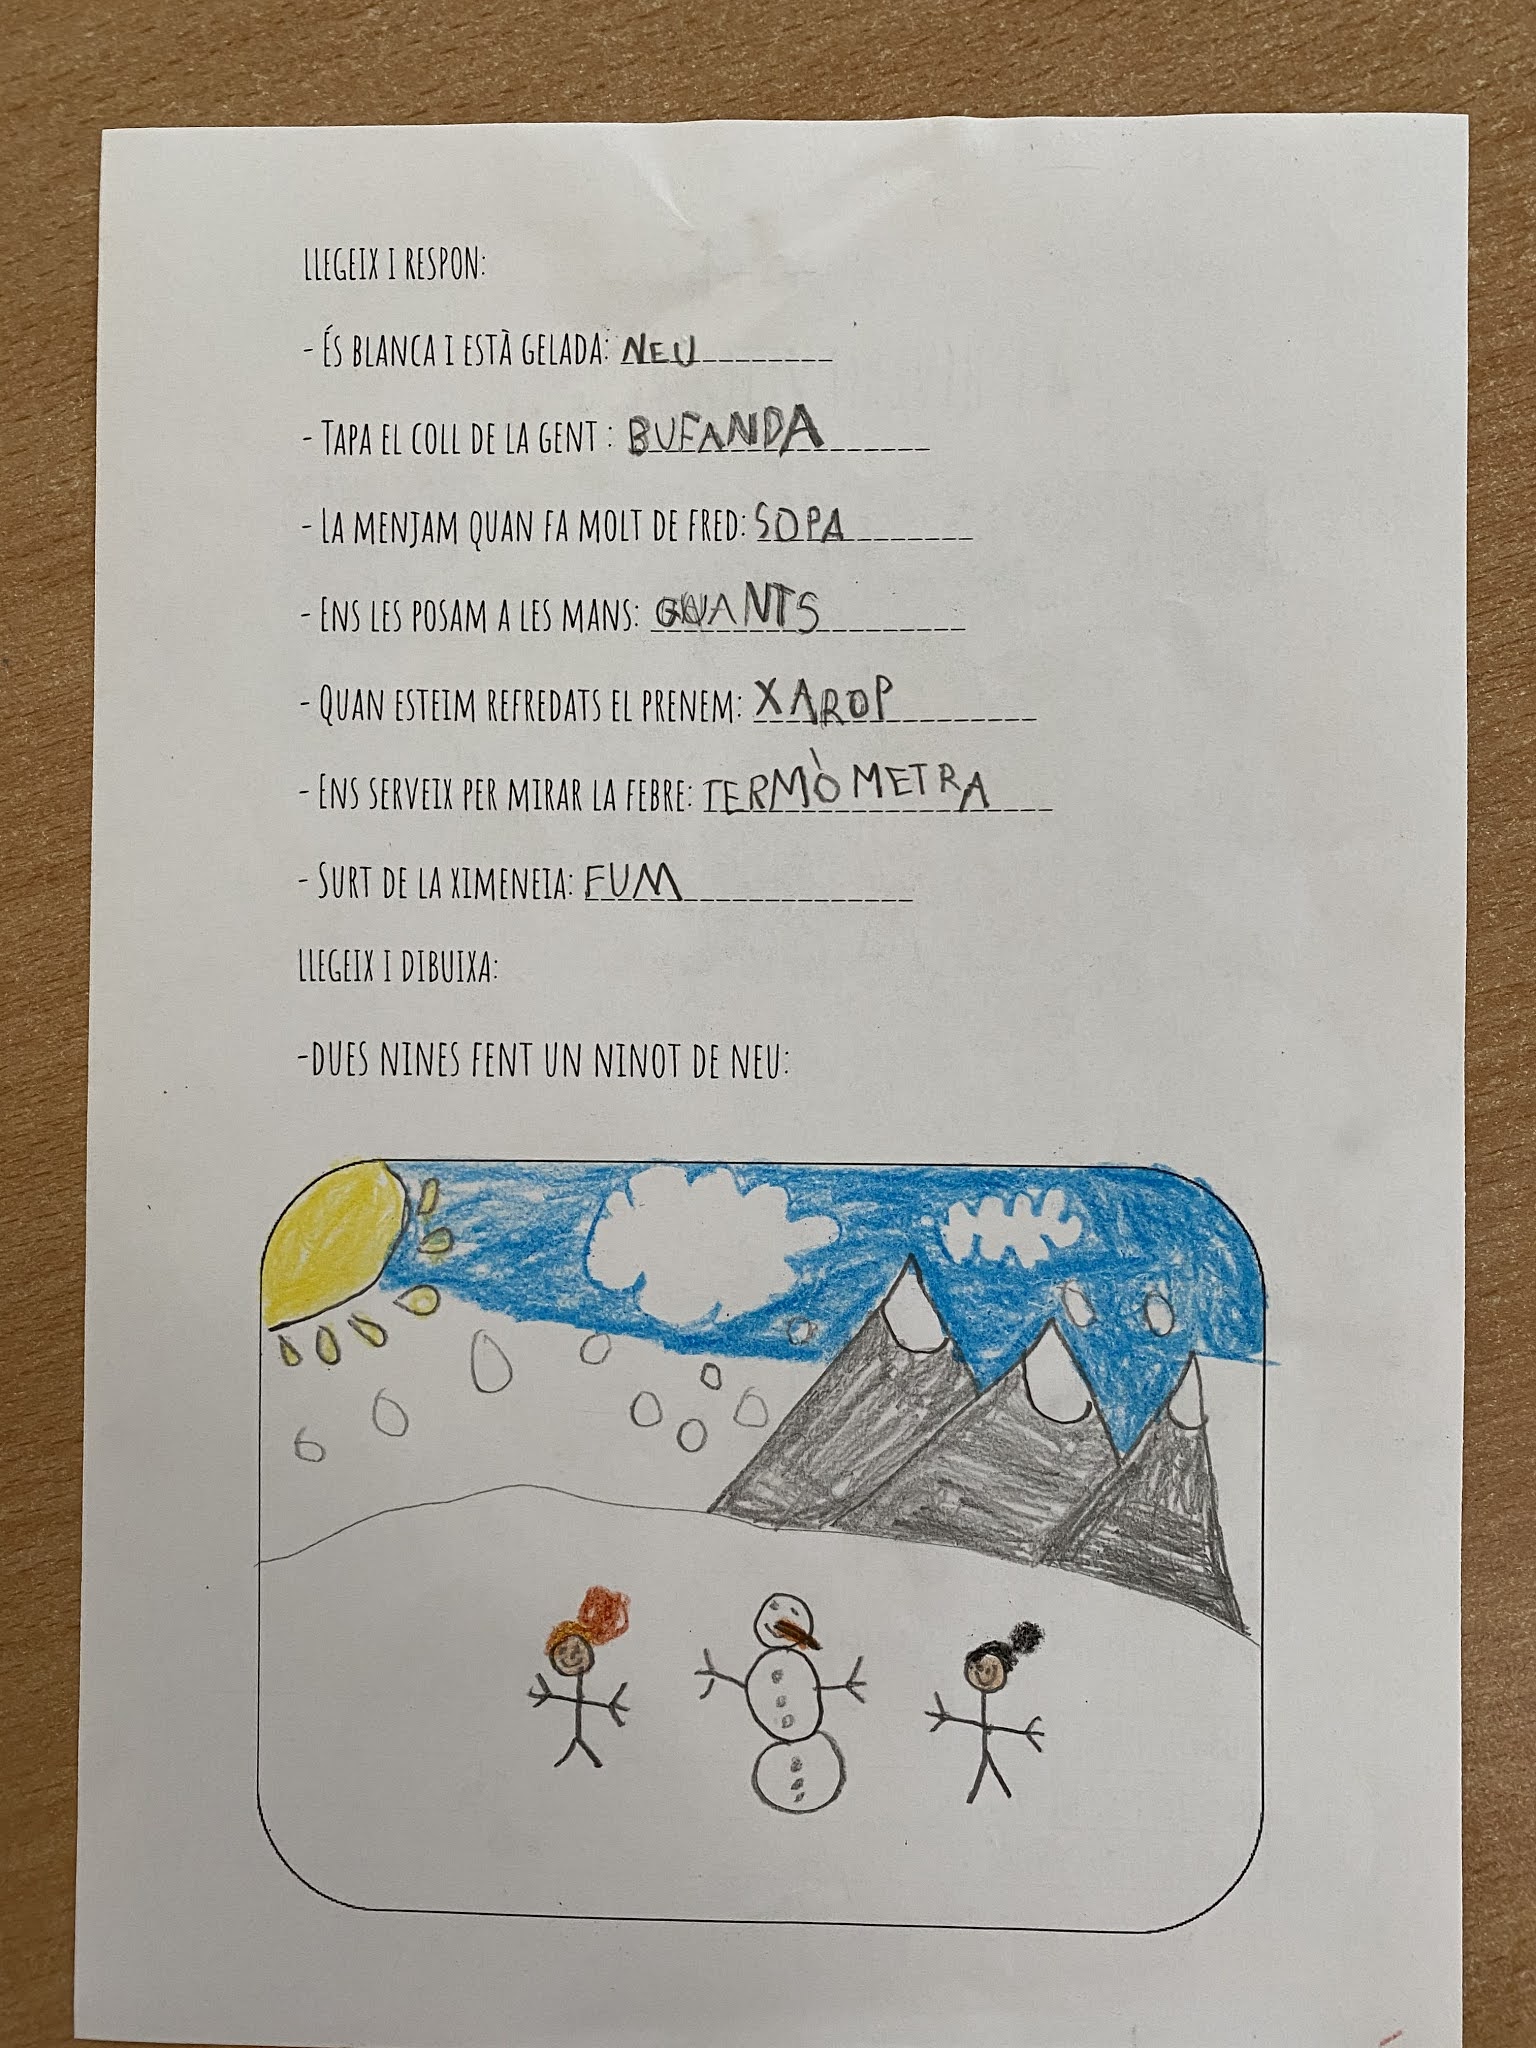 LLEGEIX I RESPON:
- ÉS BLANCA I ESTÀ GELADA: NEU
- TAPA EL COLL DE LA GENT : BUFANDA
- LA MENJAM QUAN FA MOLT DE FRED: SOPA
- ENS LES POSAM A LES MANS: GUANTS
- QUAN ESTEIM REFREDATS EL PRENEM: XAROP
- ENS SERVEIX PER MIRAR LA FEBRE: TERMÒMETRA
- SURT DE LA XIMENEIA: FUM
LLEGEIX I DIBUIXA:
-DUES NINES FENT UN NINOT DE NEU: